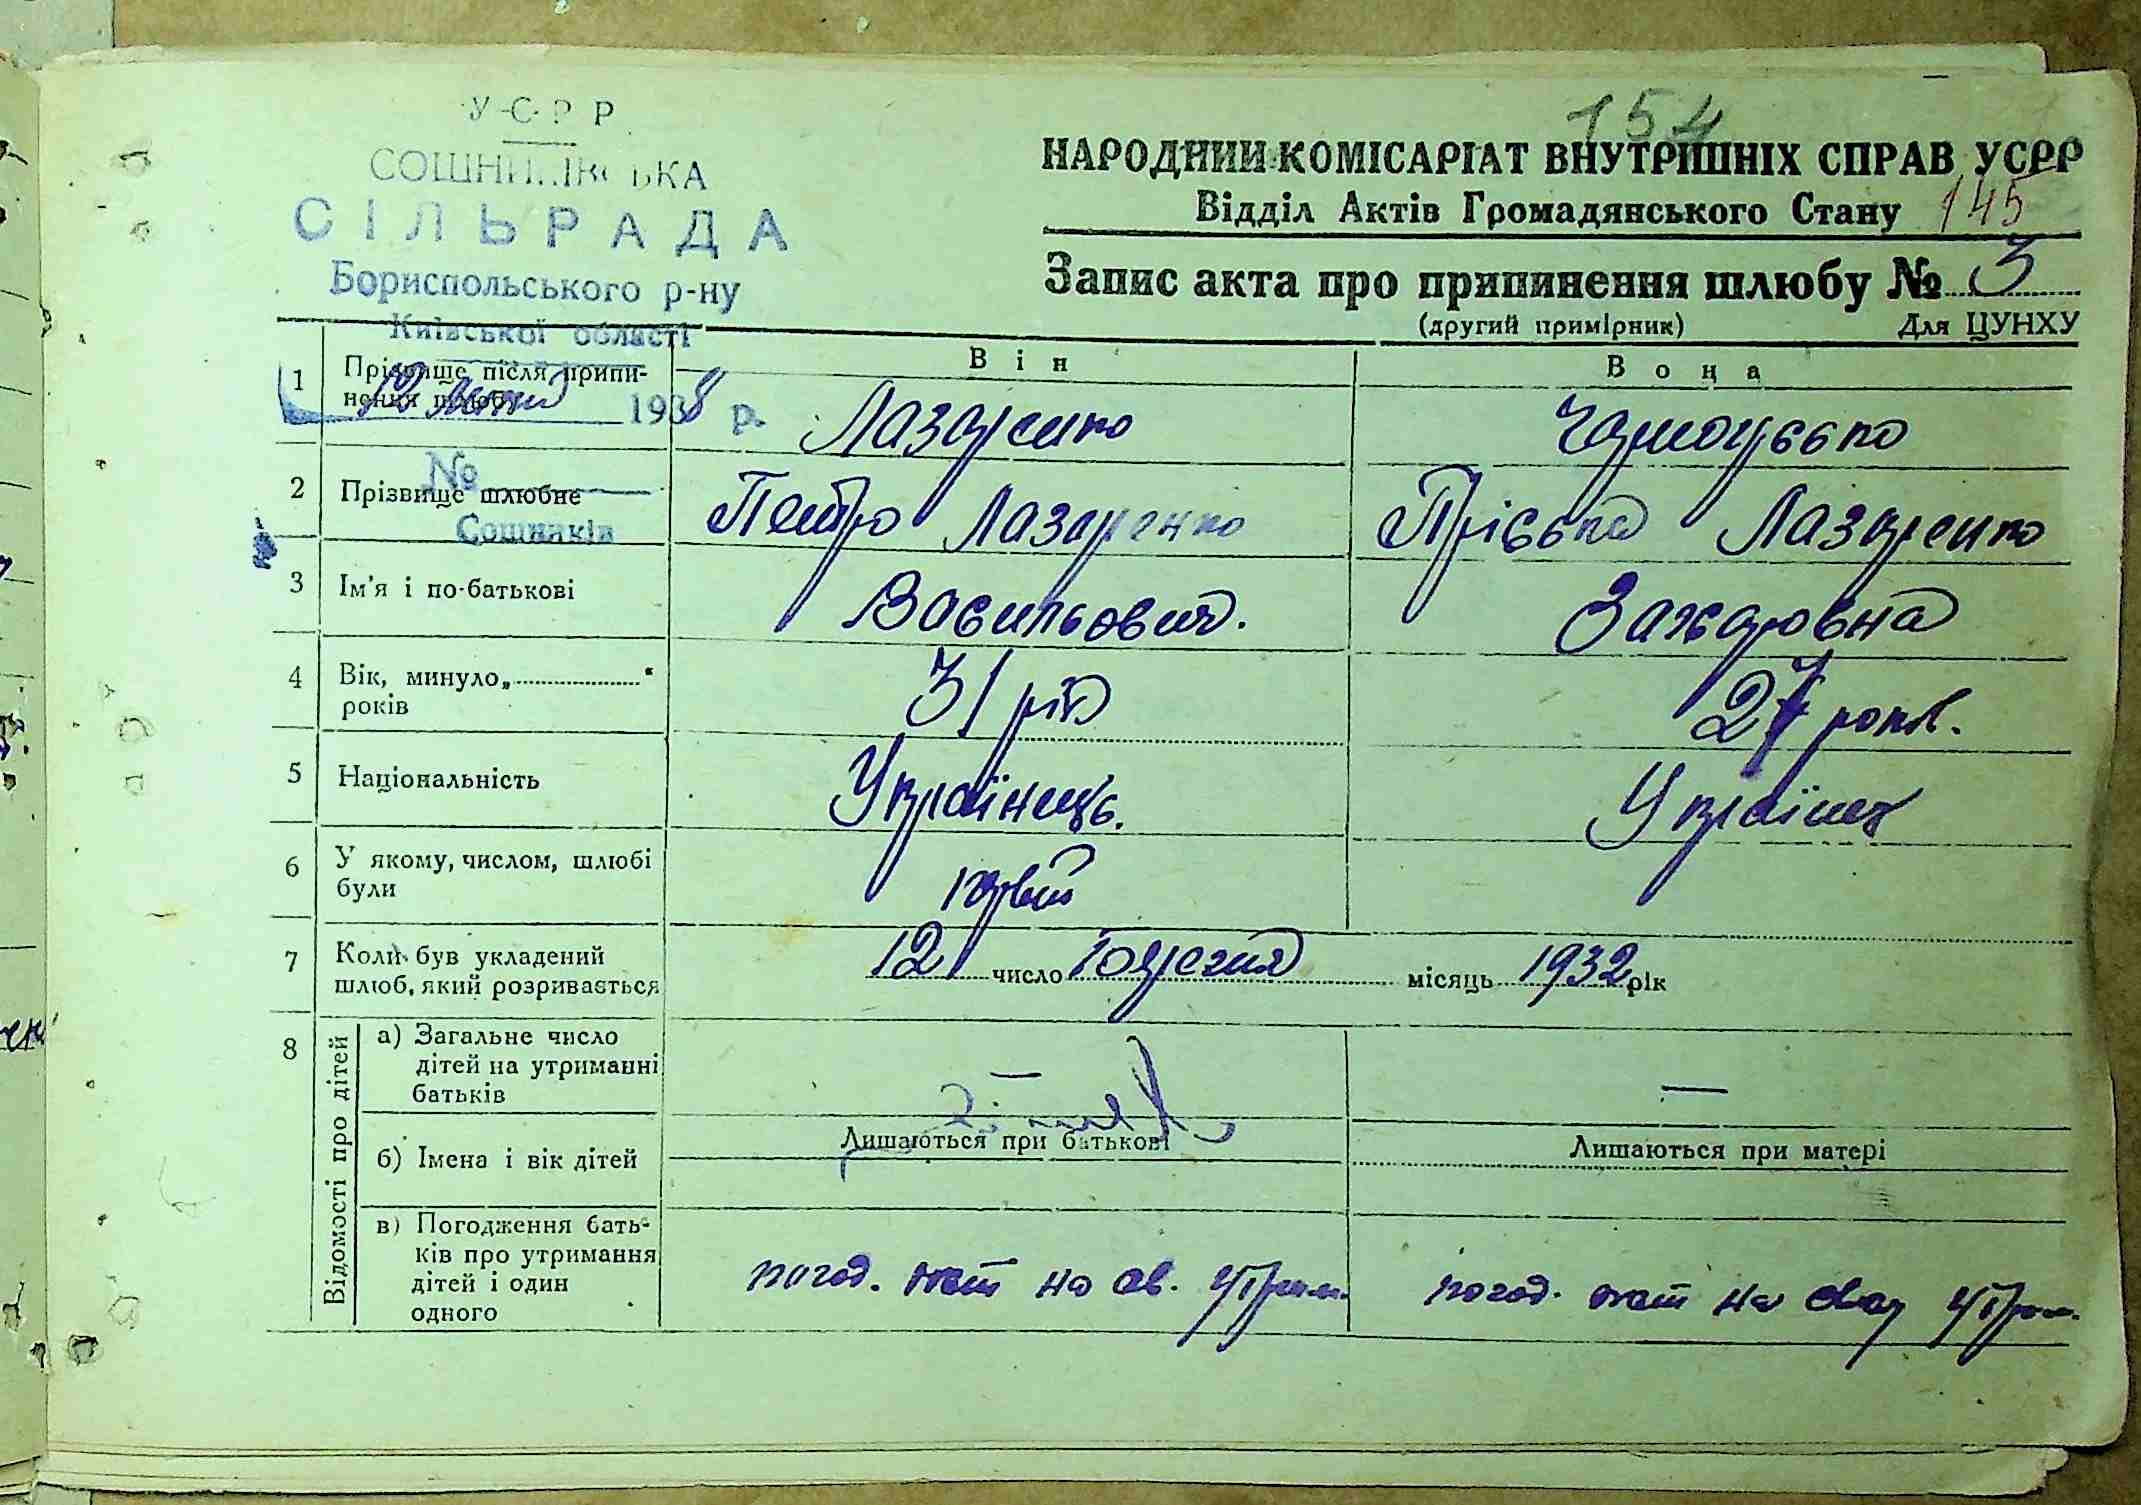 У.С.Р.Р.
СОШНИКІВСЬКА
СІЛЬРАДА
Бориспольського р-ну
Київської області
193 р.
№
Сошників
154
НАРОДНИЙ КОМІСАРІАТ ВНУТРІШНІХ СПРАВ УСРР
Відділ Актів Громадянського Стану 145
Запис акта про припинення шлюбу № 3
(другий примірник) Для ЦУНХУ
Він Вона
1 Прізвище після припинення шлюбу Лазаренко
2 Прізвище шлюбне Петро Лазаренко Пріська Лазаренко
3 Ім'я і по-батькові Васильович. Захаровна
4 Вік, минуло „ “ років 31 рік 27 років.
5 Національність Українець. Українка
6 У якому, числом, шлюбі були первий
7 Коли був укладений шлюб, який розривається 12 число березня місяць 1932 рік
8 Відомості про дітей
а) Загальне число дітей на утриманні батьків — —
б) Імена і вік дітей Лишаються при батькові Лишаються при матері
в) Погодження батьків про утримання дітей і один одного погод. на св. утрим. погод. на свому утрим.